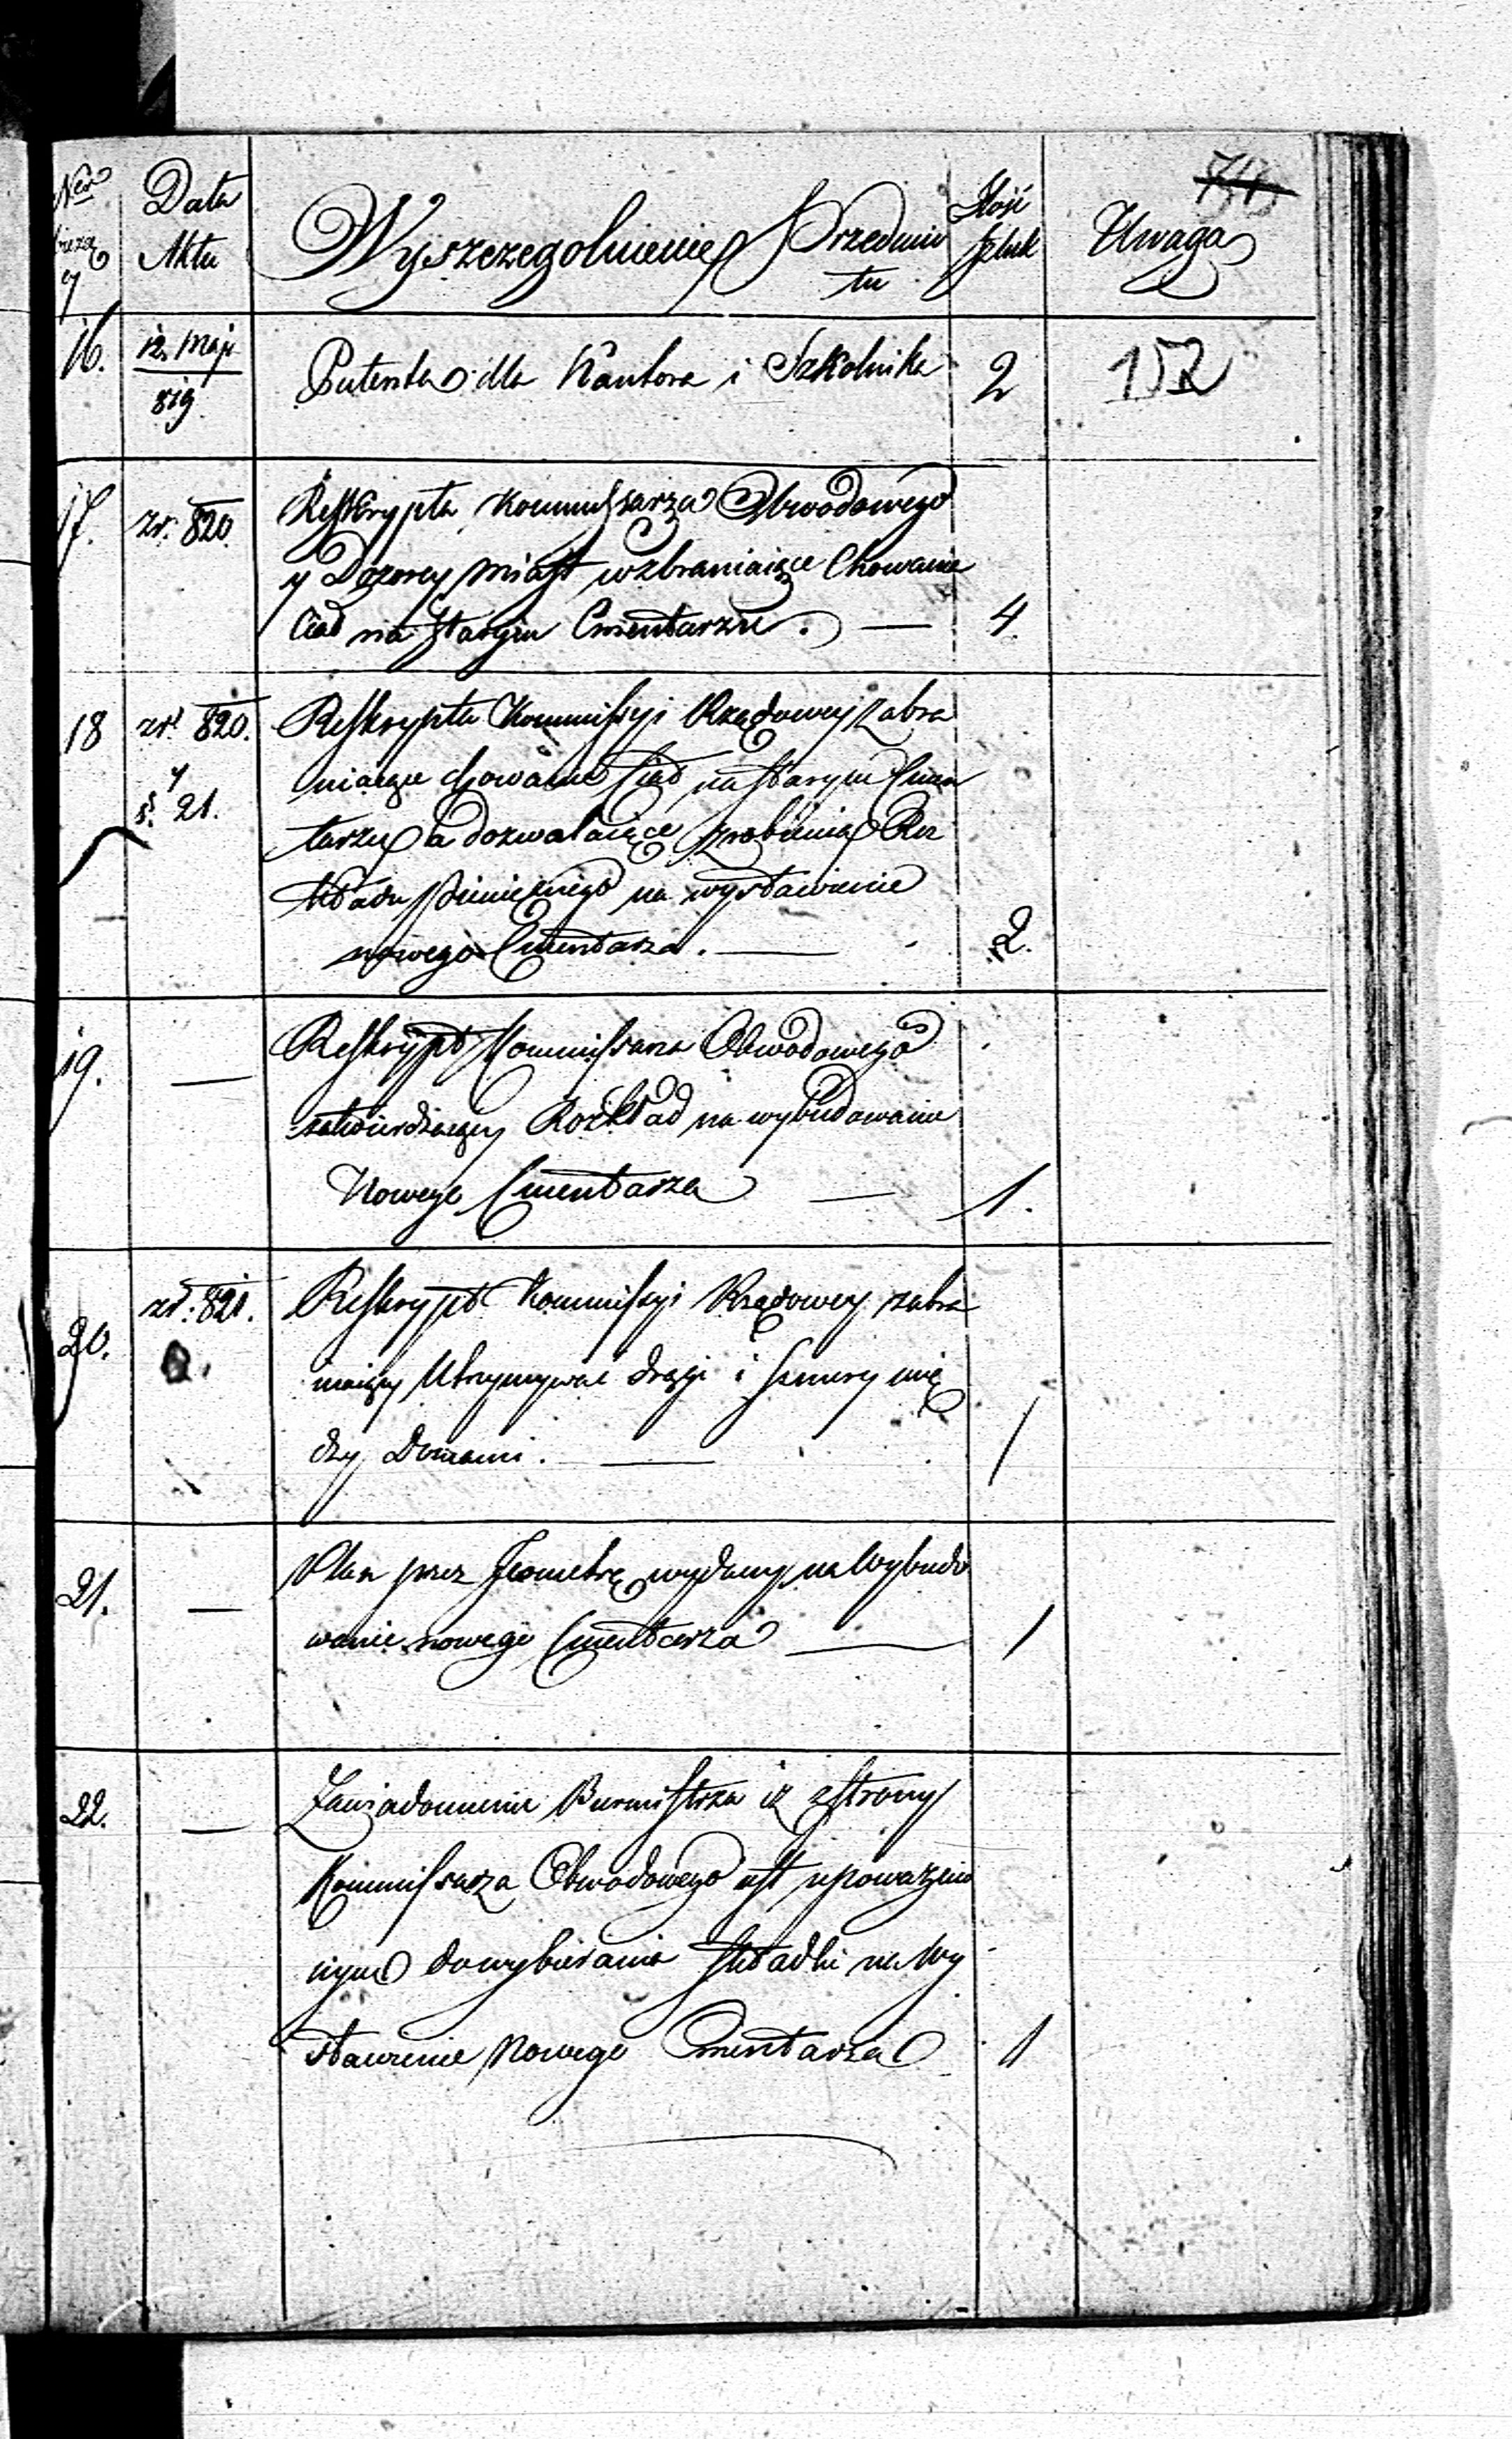 Ner
Data
Aktu
Wyszczegolnienie Przedmio
tu
Ilość
Sztuk
74
Uwaga
16.
12. Maja
819
Patenta dla Kantora i Szkolnika
2
152
17.
zr. 820.
Reskrypta Kommissarza Obwodowego
y Dozorcy Miast wzbraniaiące Chowanie
Ciał na starym Cmentarzu. —
4.
18
zr. 820.
y
21.
Reskrypta Kommissyi Rządowey zabra
niaiące chowanie Ciał na starym Cmen
tarzu a dozwalaiące zrobienia Roz
kładu pieniężnego na wystawienie
nowego Cmentarza. —
2.
19.
—
Reskrypt Kommissarza Obwodowego
zatwierdzaiący Rozkład na wybudowanie
Nowego Cmentarza —
1.
20.
zr. 821.
Reskrypt Kommissyi Rządowey zabra
niaiący Utrzymywać drągi i sznury mię
dzy Domami. —
1
21.
—
Plan przez Jeometrę wydany na Wybudo
wanie nowego Cmentarza —
1
22.
—
Zawiadomienie Burmistrza iż z strony
Kommissarza Obwodowego iest upoważnio
nym do wybierania składki na Wy
stawienie Nowego Cmentarza
1